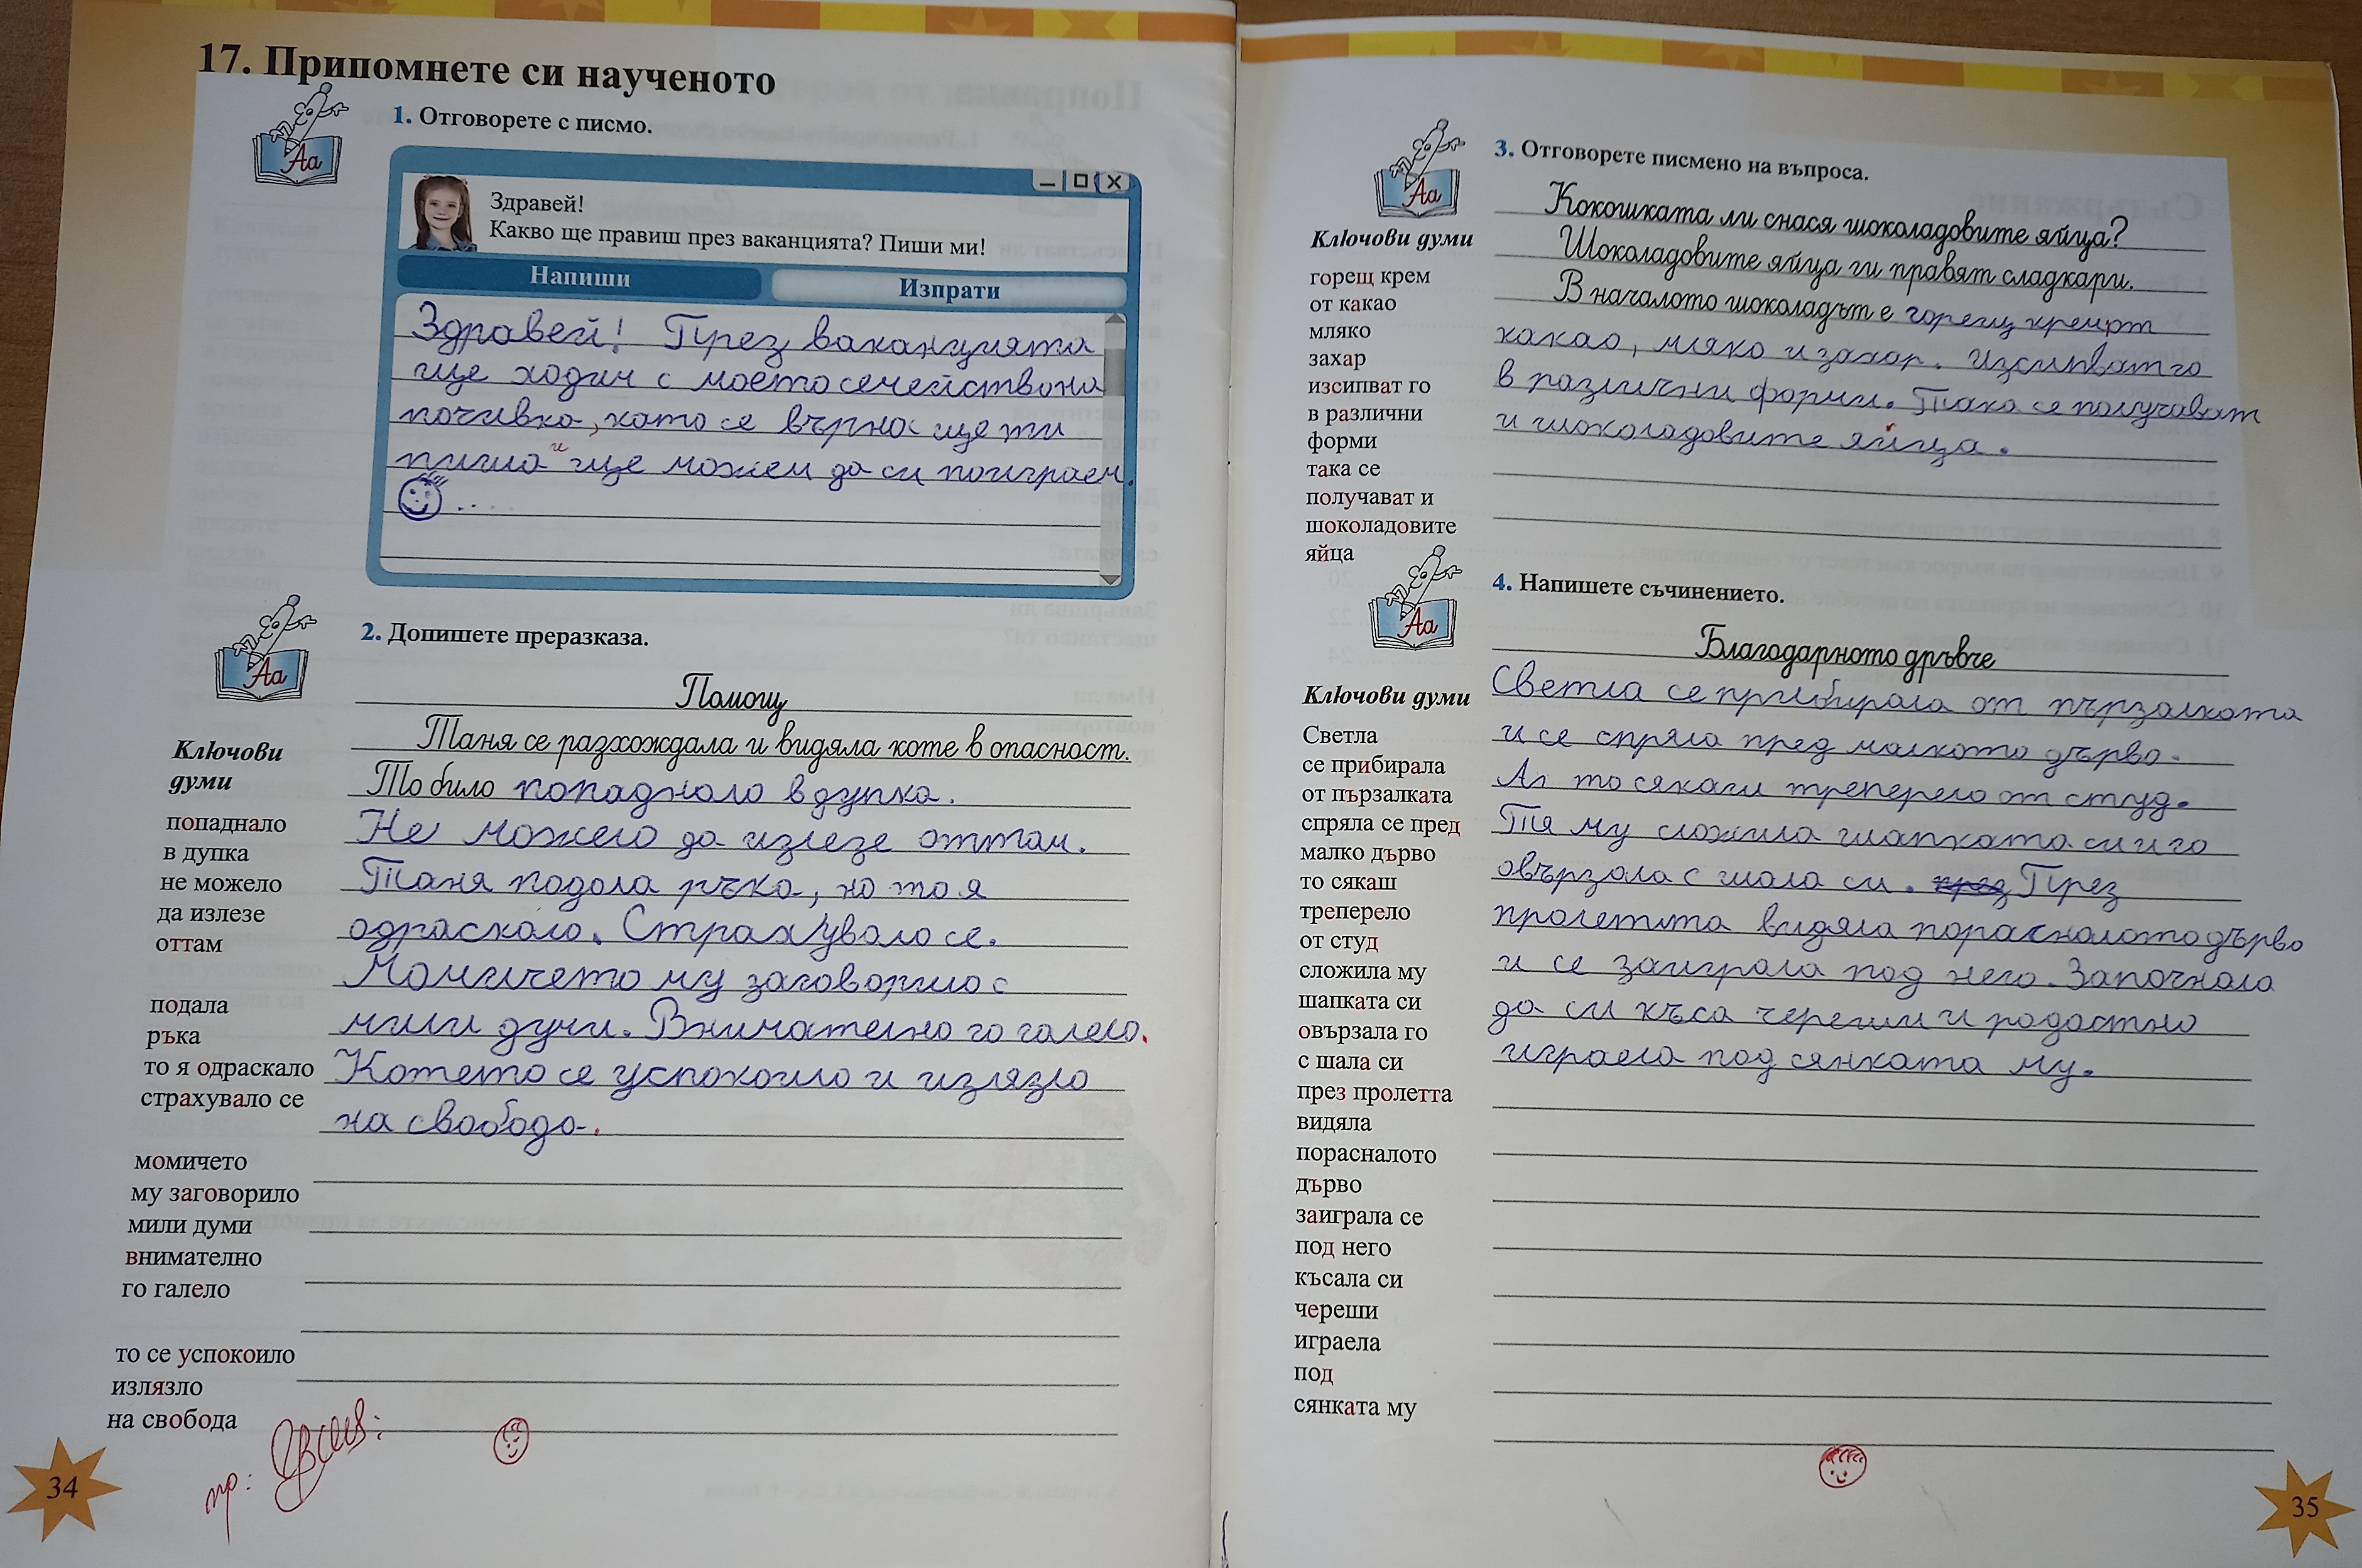 17. Припомнете си наученото
1. Отговорете с писмо.
Здравей!
Какво ще правиш през ваканцията? Пиши ми!
Напиши
Изпрати
Здравей! През ваканцията
ще ходим с моето семейство на
почивка, като се върна ще ти
пиша и ще можем да си поиграем.
2. Допишете преразказа.
Помощ
Таня се разхождала и видяла коте в опасност.
То било попаднало в дупка.
Не можело да излезе оттам.
Таня подала ръка, но то я
одраскало. Страхувало се.
Момичето му заговорило с
мили думи. Внимателно го галело.
Котето се успокоило и излязло
на свобода.
Ключови
думи
попаднало
в дупка
не можело
да излезе
оттам
подала
ръка
то я одраскало
страхувало се
момичето
му заговорило
мили думи
внимателно
го галело
то се успокоило
излязло
на свобода
пр:
34
3. Отговорете писмено на въпроса.
Кокошката ли снася шоколадовите яйца?
Шоколадовите яйца ги правят сладкари.
В началото шоколадът е горещ крем от
какао, мляко и захар. Изсипват го
в различни форми. Така се получават
и шоколадовите яйца.
Ключови думи
горещ крем
от какао
мляко
захар
изсипват го
в различни
форми
така се
получават и
шоколадовите
яйца
4. Напишете съчинението.
Благодарното дръвче
Светла се прибирала от пързалката
и се спряла пред малкото дърво.
то сякаш треперело от студ.
Тя му сложила шапката си и го
овързала с шала си. През
пролетта видяла порасналото дърво
и се заиграла под него. Започнала
да си къса череши и радостно
играела под сянката му.
Ключови думи
Светла
се прибирала
от пързалката
спряла се пред
малко дърво
то сякаш
треперело
от студ
сложила му
шапката си
овързала го
с шала си
през пролетта
видяла
порасналото
дърво
заиграла се
под него
късала си
череши
играела
под
сянката му
35